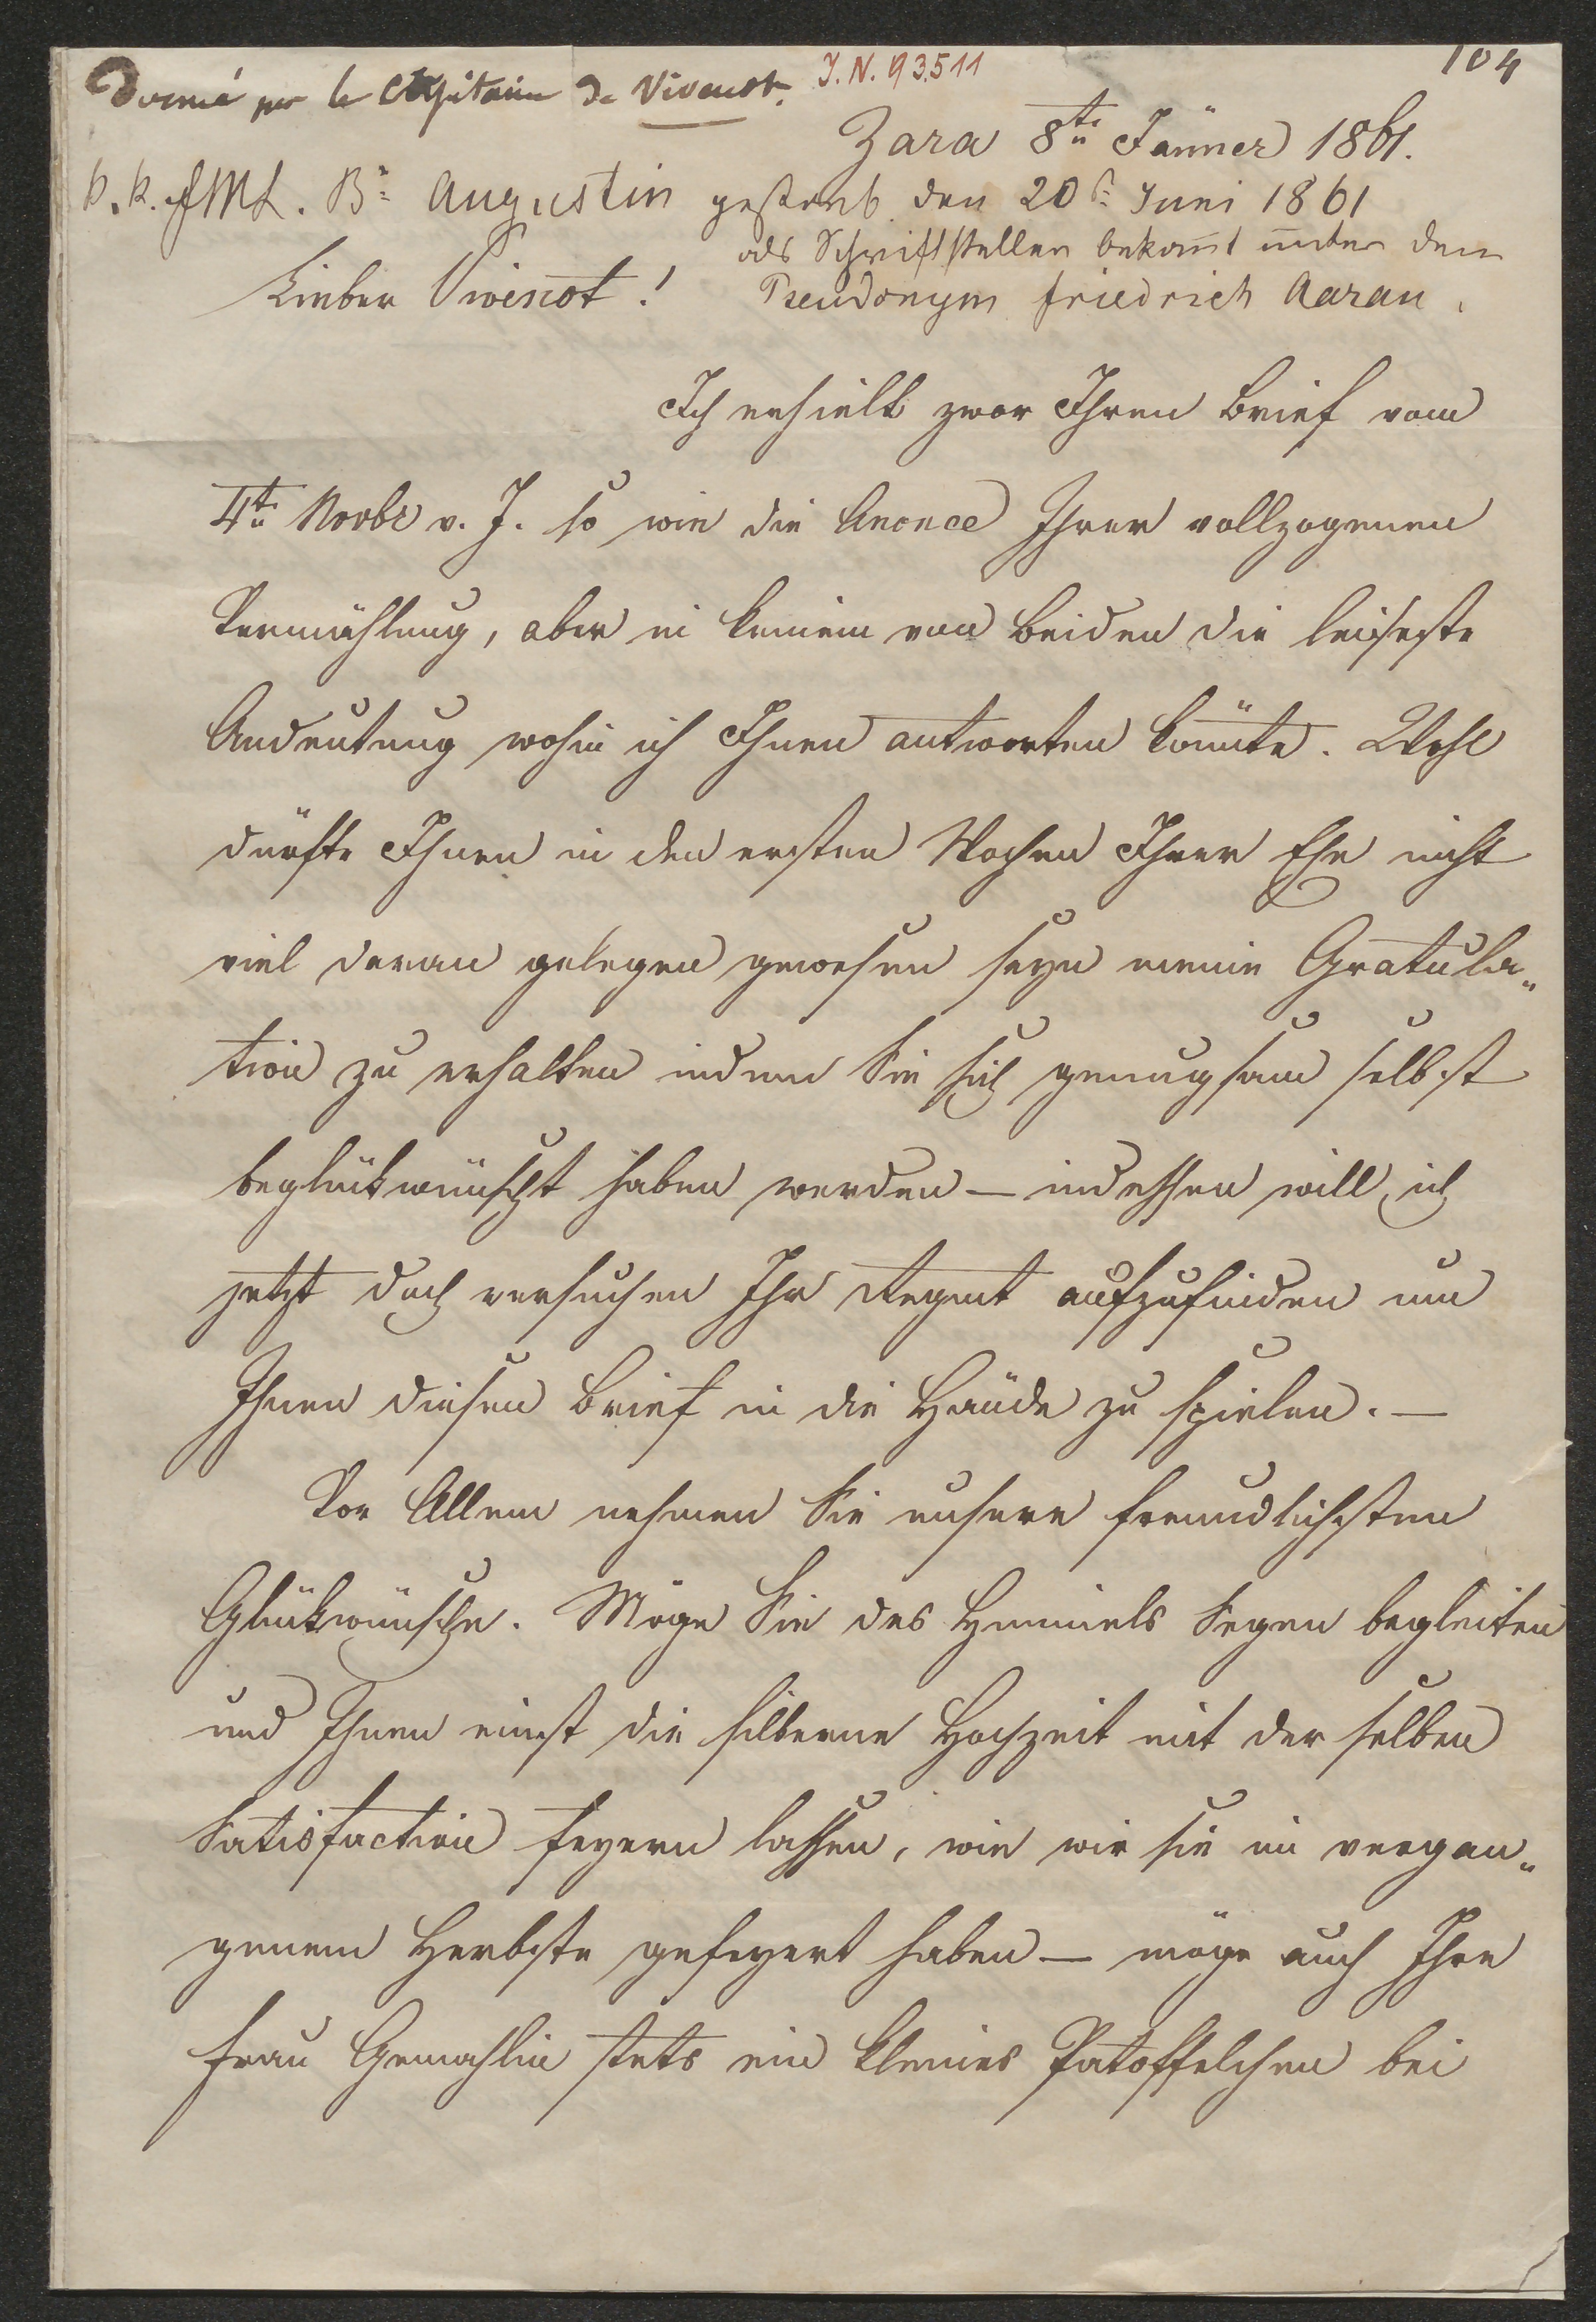 Donné par le Capitaine de Vivenot.
J.N. 93511
104
Zara 8ten Jänner 1861.
k. k. FML. Bn Augustin gestorb. den 20t. Juni 1861
als Schriftsteller bekannt unter dem
Pseudonym Friedrich Aarau.
Lieber Vivenot!
Ich erhielt zwar Ihren Brief vom
4ten Novbr v. J. so wie die Anonce Ihrer vollzogenen
Vermählung, aber in keinem von beiden die leiseste
Andeutung wohin ich Ihnen antworten könnte. Wohl
dürfte Ihnen in den ersten Wochen Ihrer Ehe nicht
viel daran gelegen gewesen seyn meine Gratula„
tion zu erhalten indem Sie sich genugsam selbst
beglükwünscht haben werden – indessen will ich
jetzt doch versuchen Ihr Regmt aufzufinden um
Ihnen diesen Brief in die Hände zu spielen. –
Vor Allem nehmen Sie unsere freundlichsten
Glükwünsche. Möge Sie des Himmels Segen begleiten
und Ihnen einst die silberne Hochzeit mit der selben
Satisfaction feyern lassen, wie wir sie im vergan„
genem Herbste gefeyert haben – möge auch Ihre
Frau Gemahlin stets ein kleines Patoffelchen bei